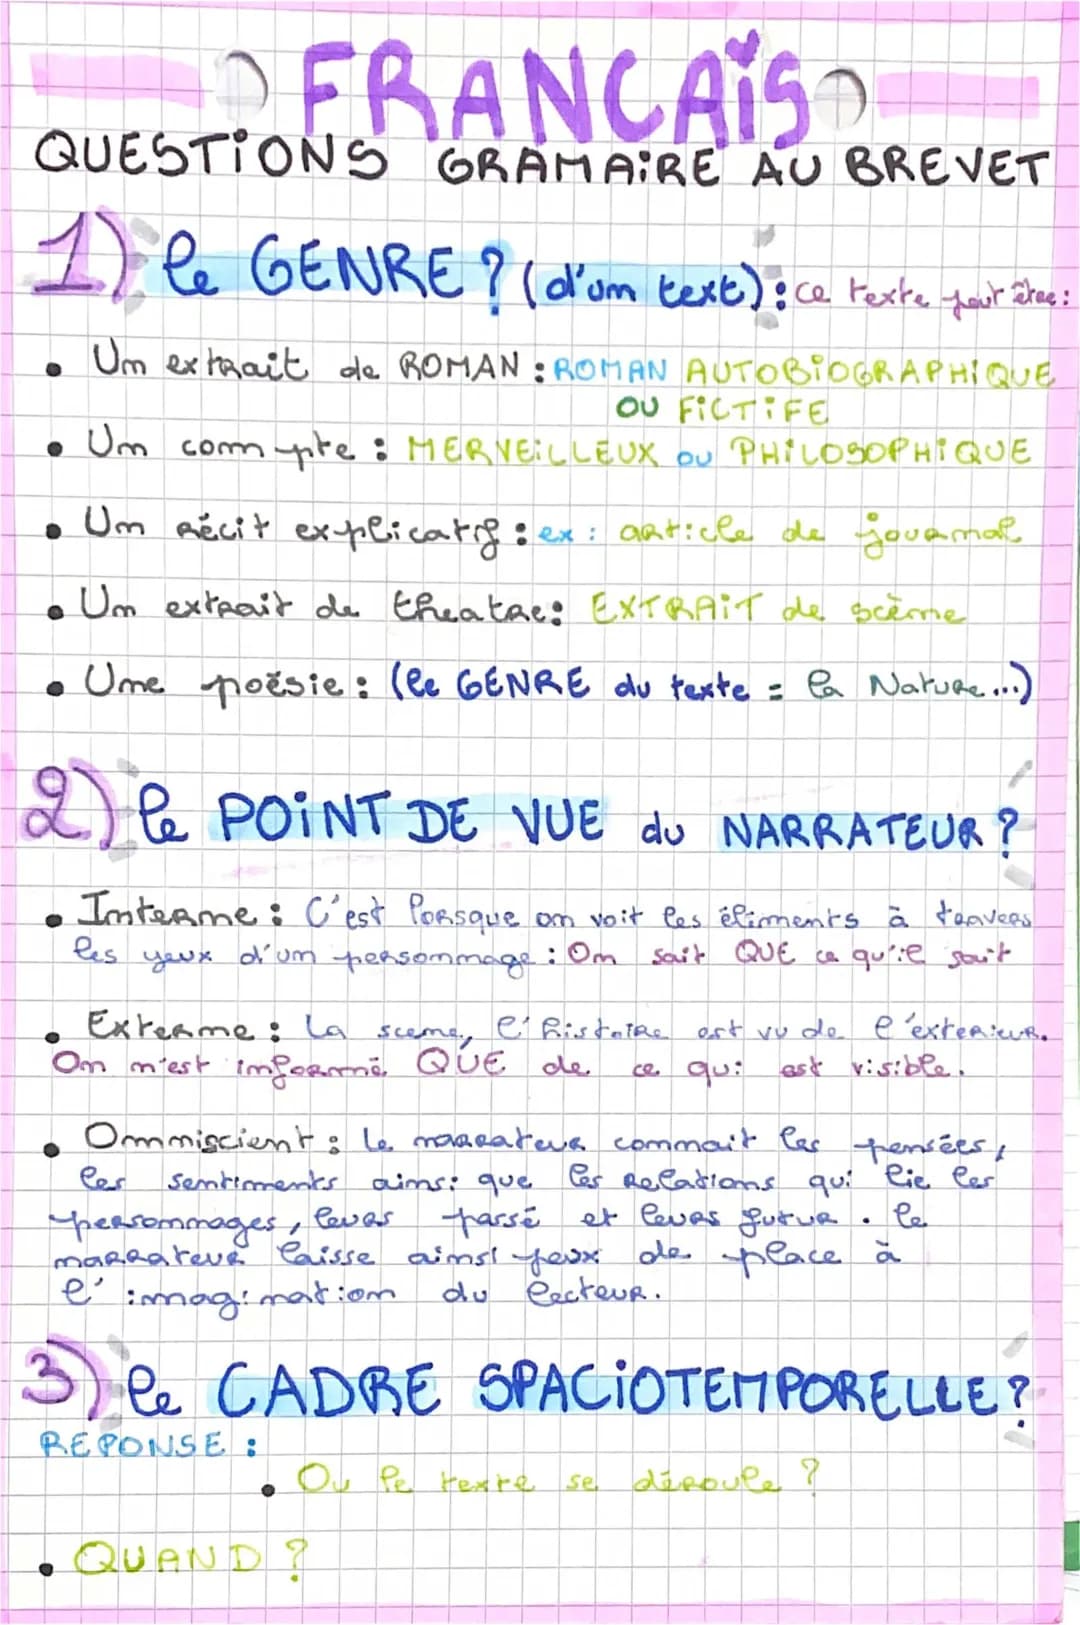 FRANCAIS
QUESTIONS GRAMAIRE AU BREVET
1) le GENRE ? (d'un text) : ce texte peut être :
• Un extrait de ROMAN : ROMAN AUTOBIOGRAPHIQUE
OU FICTIFE
• Un compte : MERVEILLEUX ou PHILOSOPHIQUE
• Un récit explicatif : ex : article de journal
• Un extrait de theatre : EXTRAIT de scène
• Une poèsie : (le GENRE du texte = la Nature...)
2) le POINT DE VUE du NARRATEUR ?
• Interne : C'est lorsque on voit les éliments à travers
les yeux d'un personnage : On sait QUE ce qu'il sait
• Externe : La scene, l'histoire est vu de l'exterieur.
On n'est informé QUE de ce qui est visible.
• Omniscient : le narrateur connait les pensées,
les sentiments ainsi que les relations qui lie les
personnages, leurs passé et leurs futur. le
narrateur laisse ainsi peux de place à
l'imagination du lecteur.
3) le CADRE SPACIOTEMPORELLE ?
REPONSE :
• Ou le texte se déroule ?
• QUAND ?